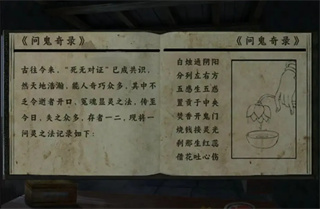 《问鬼奇录》
古往今来，“死无对证”已成共识，
然天地浩瀚，能人奇巧众多，其中不
乏令逝者开口，冤魂显灵之法，传至
今日，失之众多，存者一二，现将一
问灵之法记录如下：
《问鬼奇录》
白烛通阴阳
分列左右方
五感生五感
置黄于中央
焚香开鬼门
烧钱接灵光
刹那生红蕊
借花吐心伤